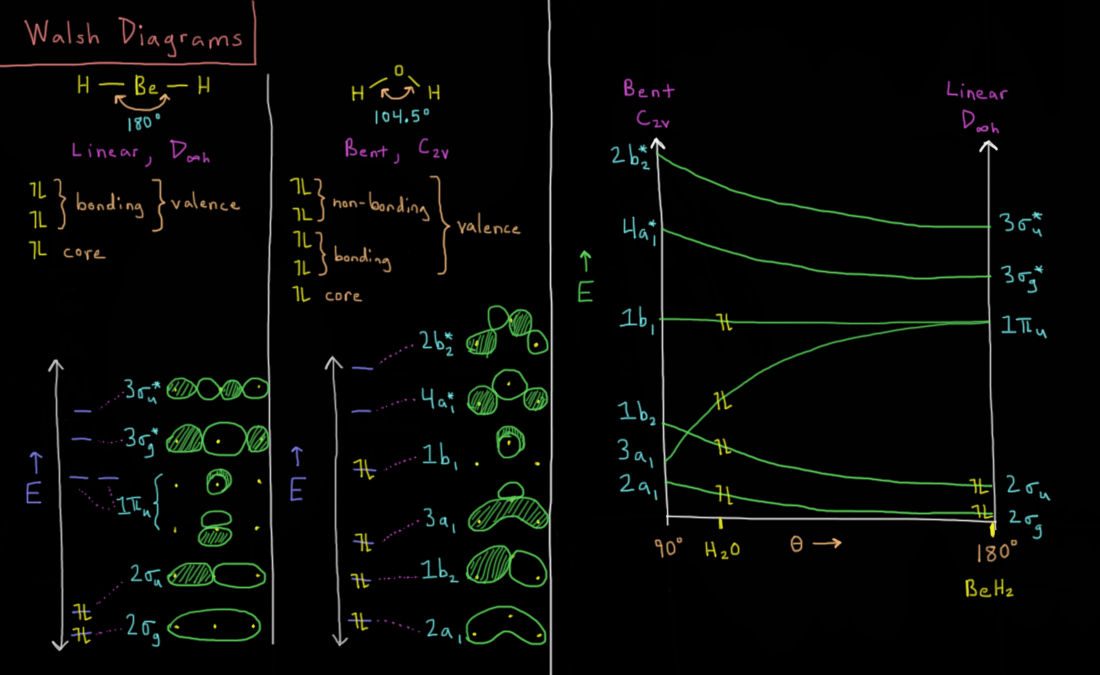 Walsh Diagrams
H — Be — H
180°
Linear, D∞h
bonding
valence
core
3σu*
3σg*
1πu
2σu
2σg
E
O
H H
104.5°
Bent, C2v
non-bonding
bonding
valence
core
2b2*
4a1*
1b1
3a1
1b2
2a1
E
Bent
C2v
Linear
D∞h
2b2*
4a1*
1b1
1b2
3a1
2a1
3σu*
3σg*
1πu
2σu
2σg
E
90° H2O θ → 180°
BeH2